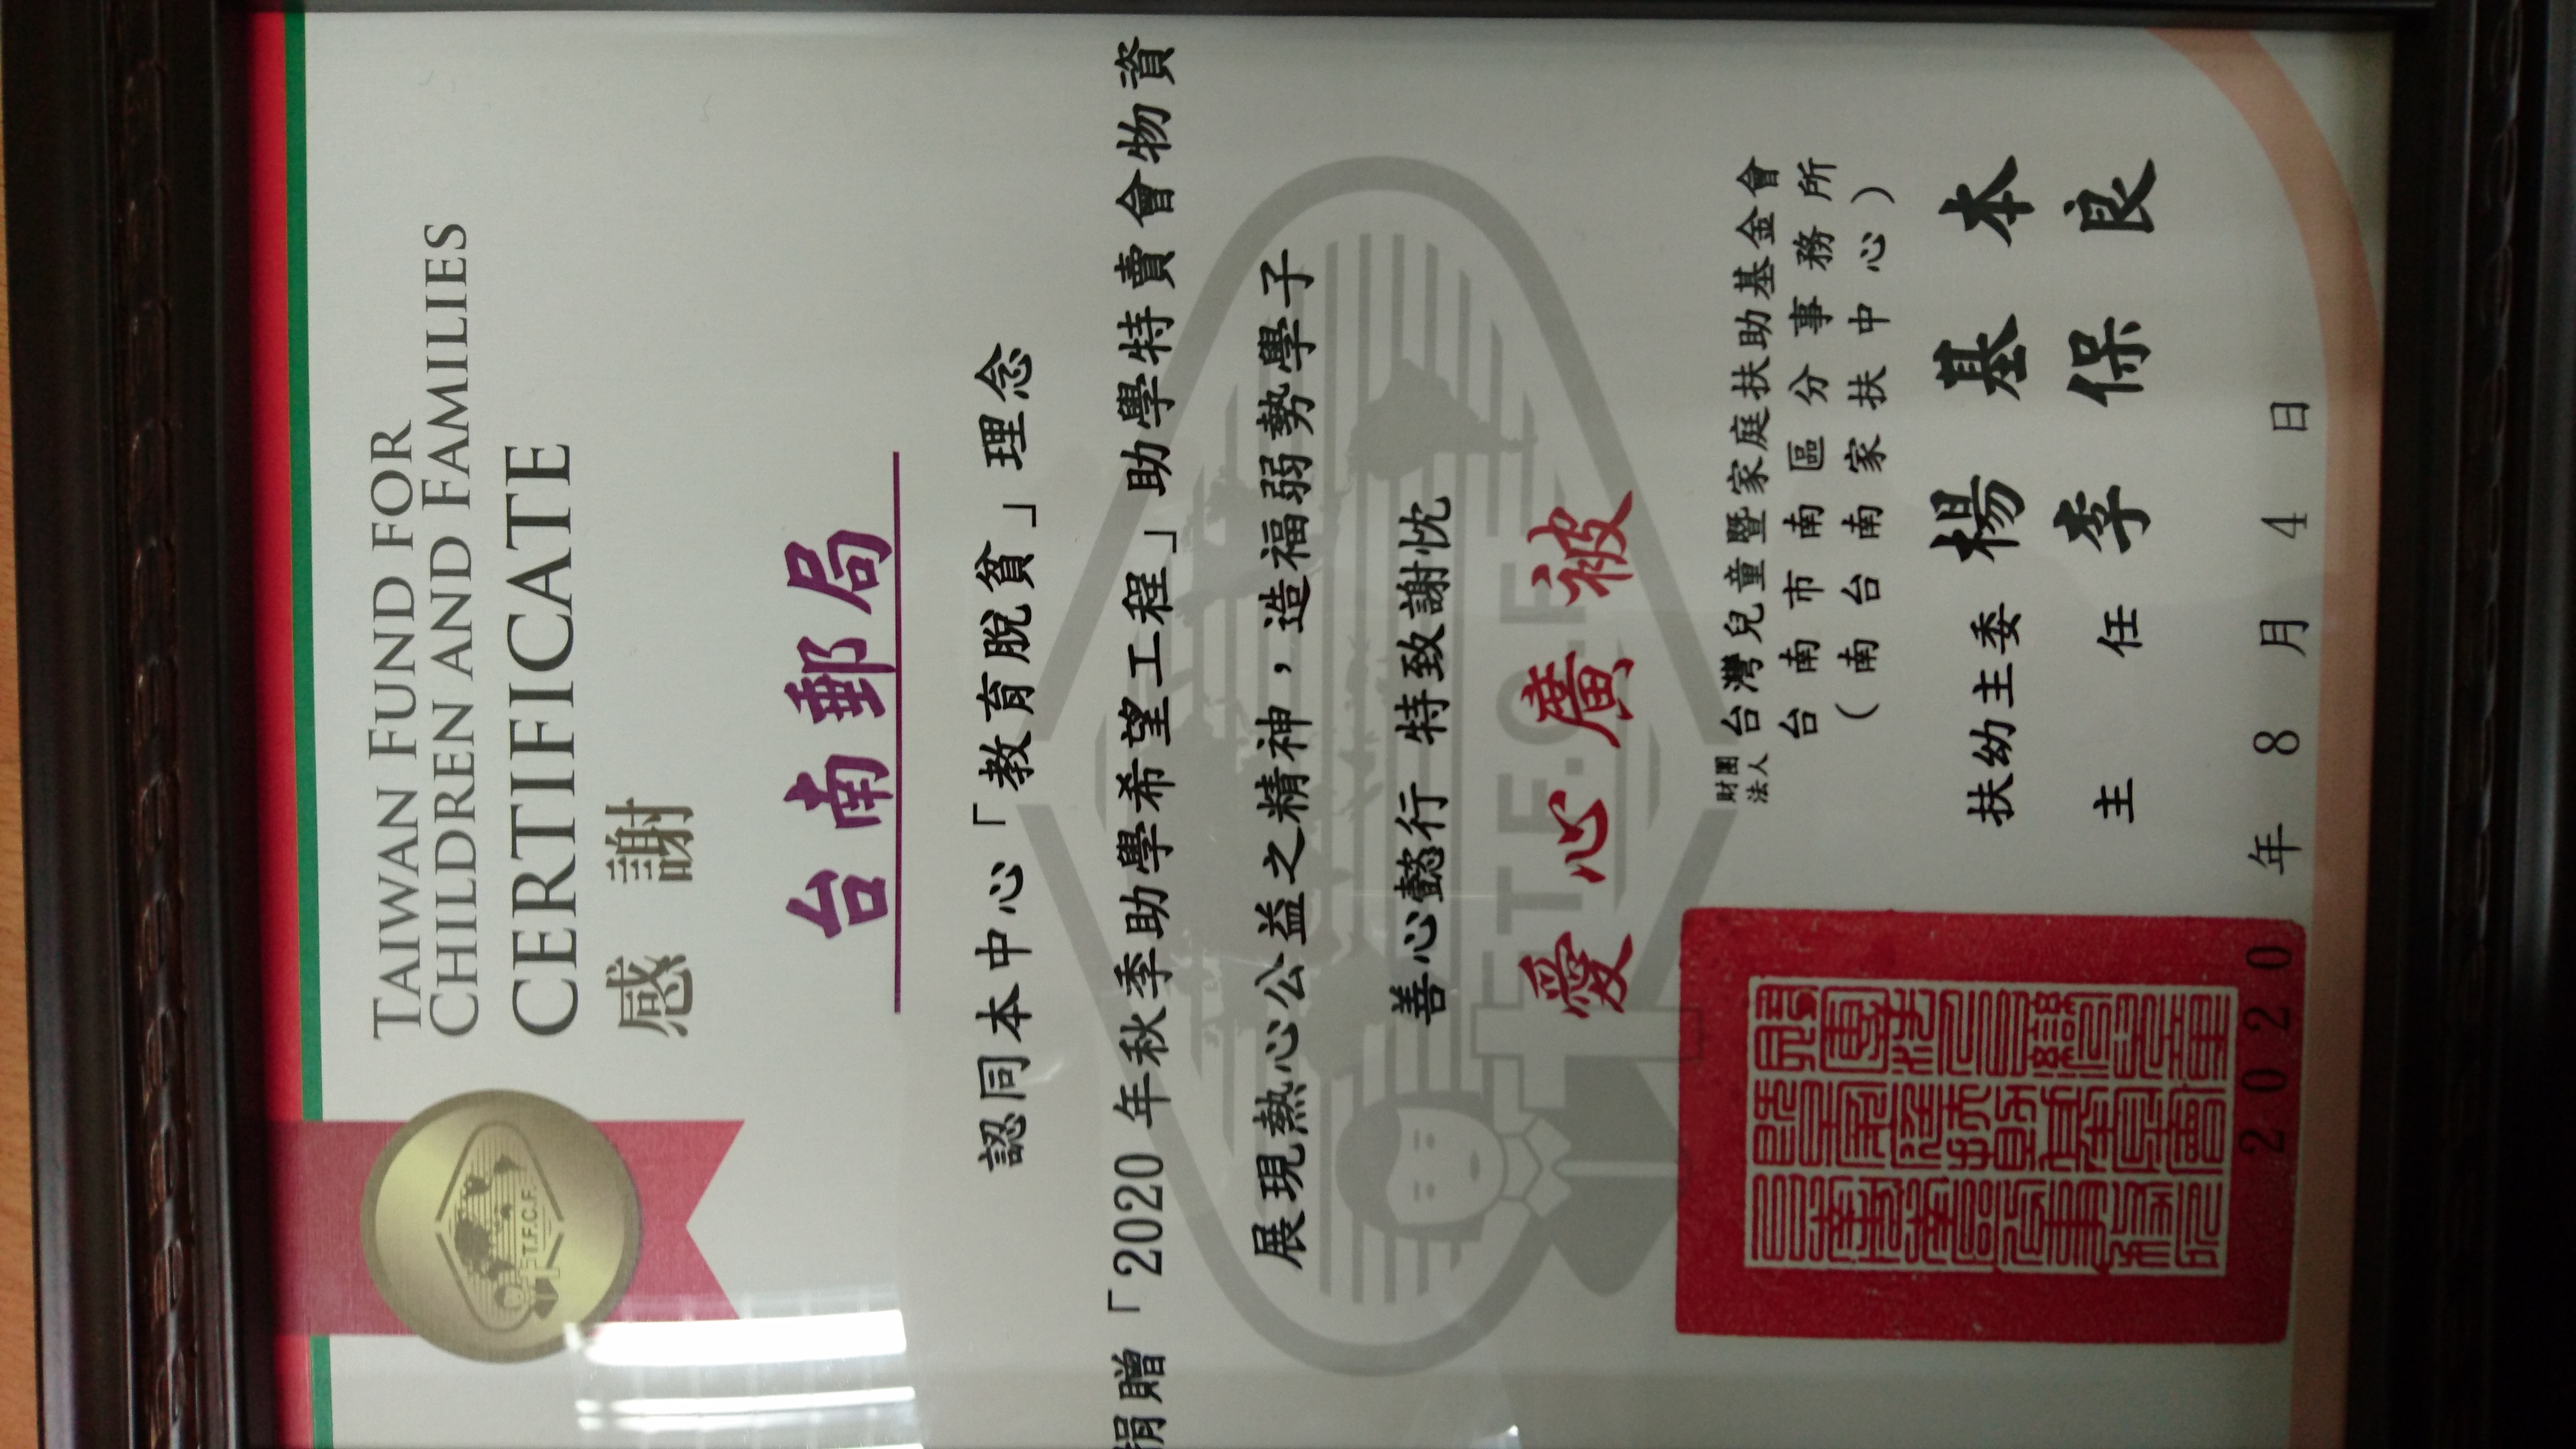 TAIWAN FUND FOR
CHILDREN AND FAMILIES
CERTIFICATE
感謝
台南郵局
認同本中心「教育脫貧」理念
捐贈「2020年秋季助學希望工程」助學特賣會物資
展現熱心公益之精神，造福弱勢學子
善心懿行 特致謝忱
愛心廣被
財團法人台灣兒童暨家庭扶助基金會
台南市南區分事務所
（南台南家扶中心）
扶幼主委 楊基本
主任 李保良
2020年8月4日
T.F.C.F.
T.F.C.F